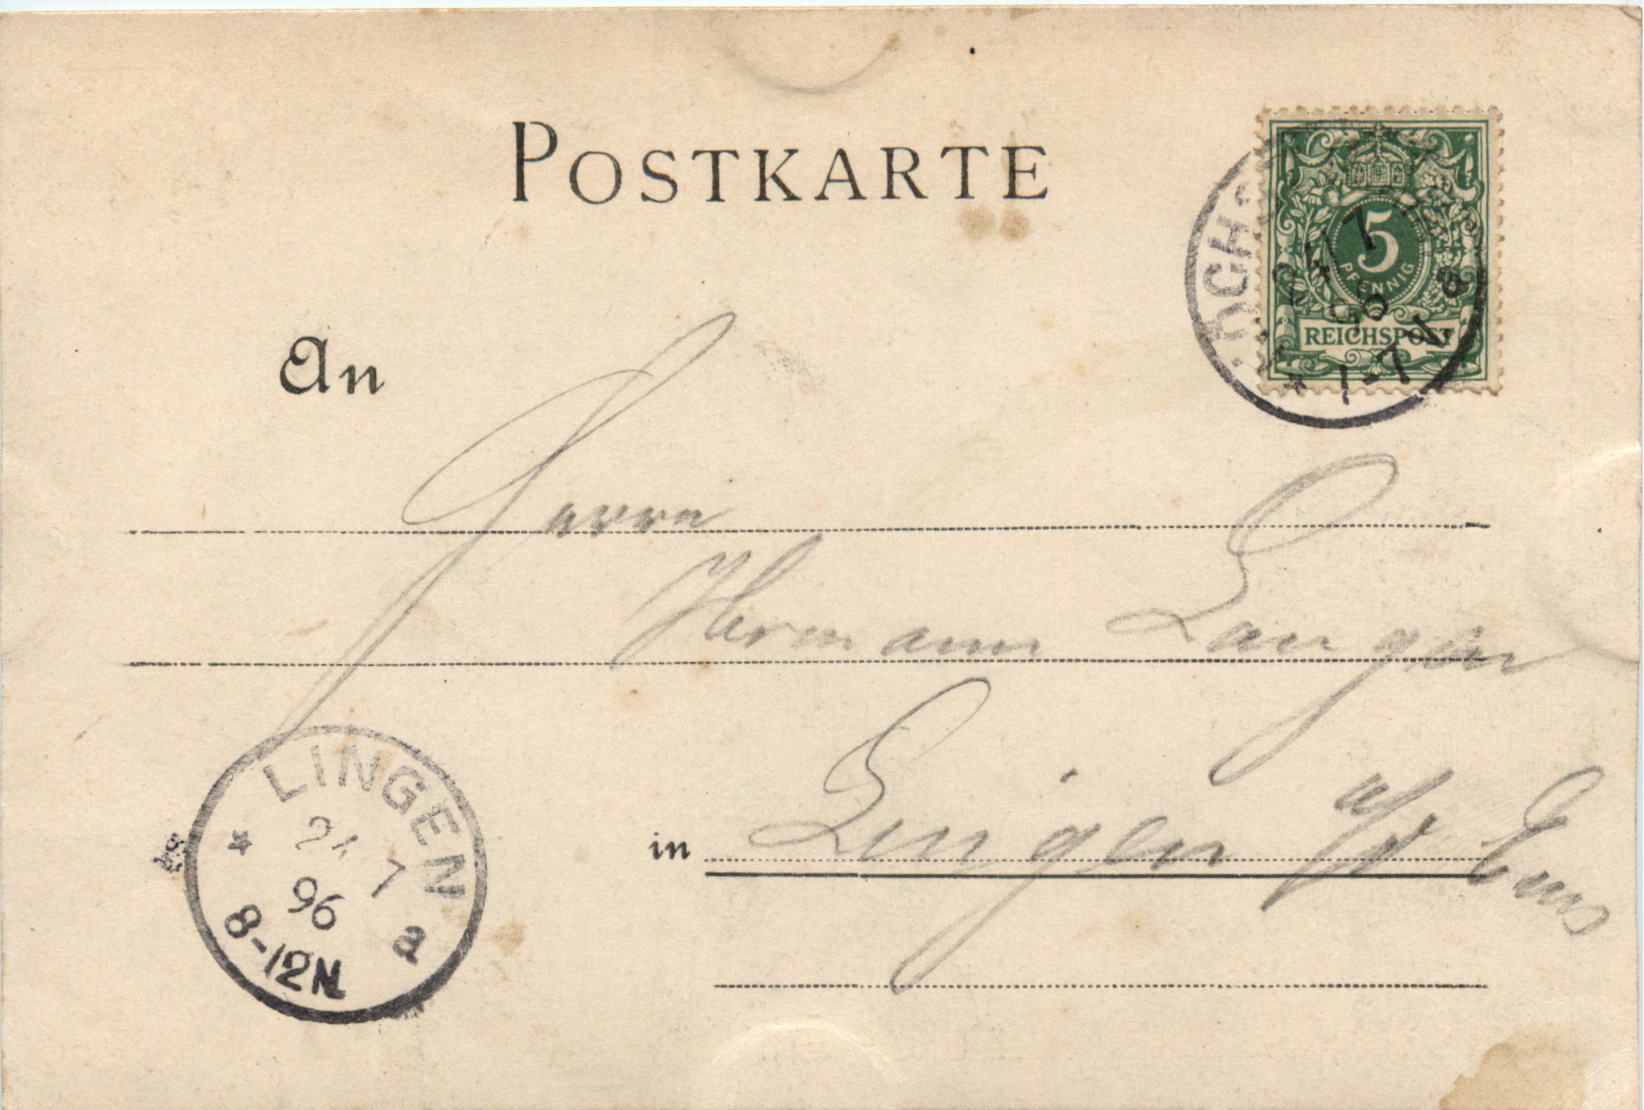 POSTKARTE
5
PFENNIG
REICHSPOST
7
96
1-7N
a
An
Herrn
Hermann Langen
in Lingen a/d Ems
LINGEN
7
96
a
8-12N